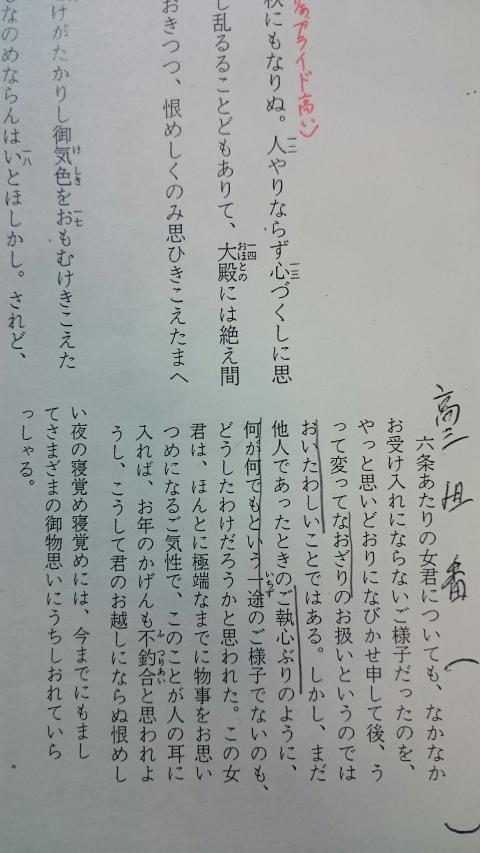 プライド高い)
秋にもなりぬ。人やりならず心づくしに思
一二 一三
し乱るることどもありて、大殿には絶え間
一四 おほとの
おきつつ、恨めしくのみ思ひきこえたまへ
けがたかりし御気色をおもむけきこえた
けしき 一七
なのめならんはいとほしかし。されど、
一八
高三
六条あたりの女君についても、なかなか
お受け入れにならないご様子だったのを、
やっと思いどおりになびかせ申して後、う
って変ってなおざりのお扱いというのでは
おいたわしいことではある。しかし、まだ
他人であったときのご執心ぶりのように、
何が何でもという一途のご様子でないのも、
いちず
どうしたわけだろうかと思われた。この女
君は、ほんとに極端なまでに物事をお思い
つめになるご気性で、このことが人の耳に
入れば、お年のかげんも不釣合と思われよ
ふつりあい
うし、こうして君のお越しにならぬ恨めし
い夜の寝覚め寝覚めには、今までにもまし
てさまざまの御物思いにうちしおれていら
っしゃる。